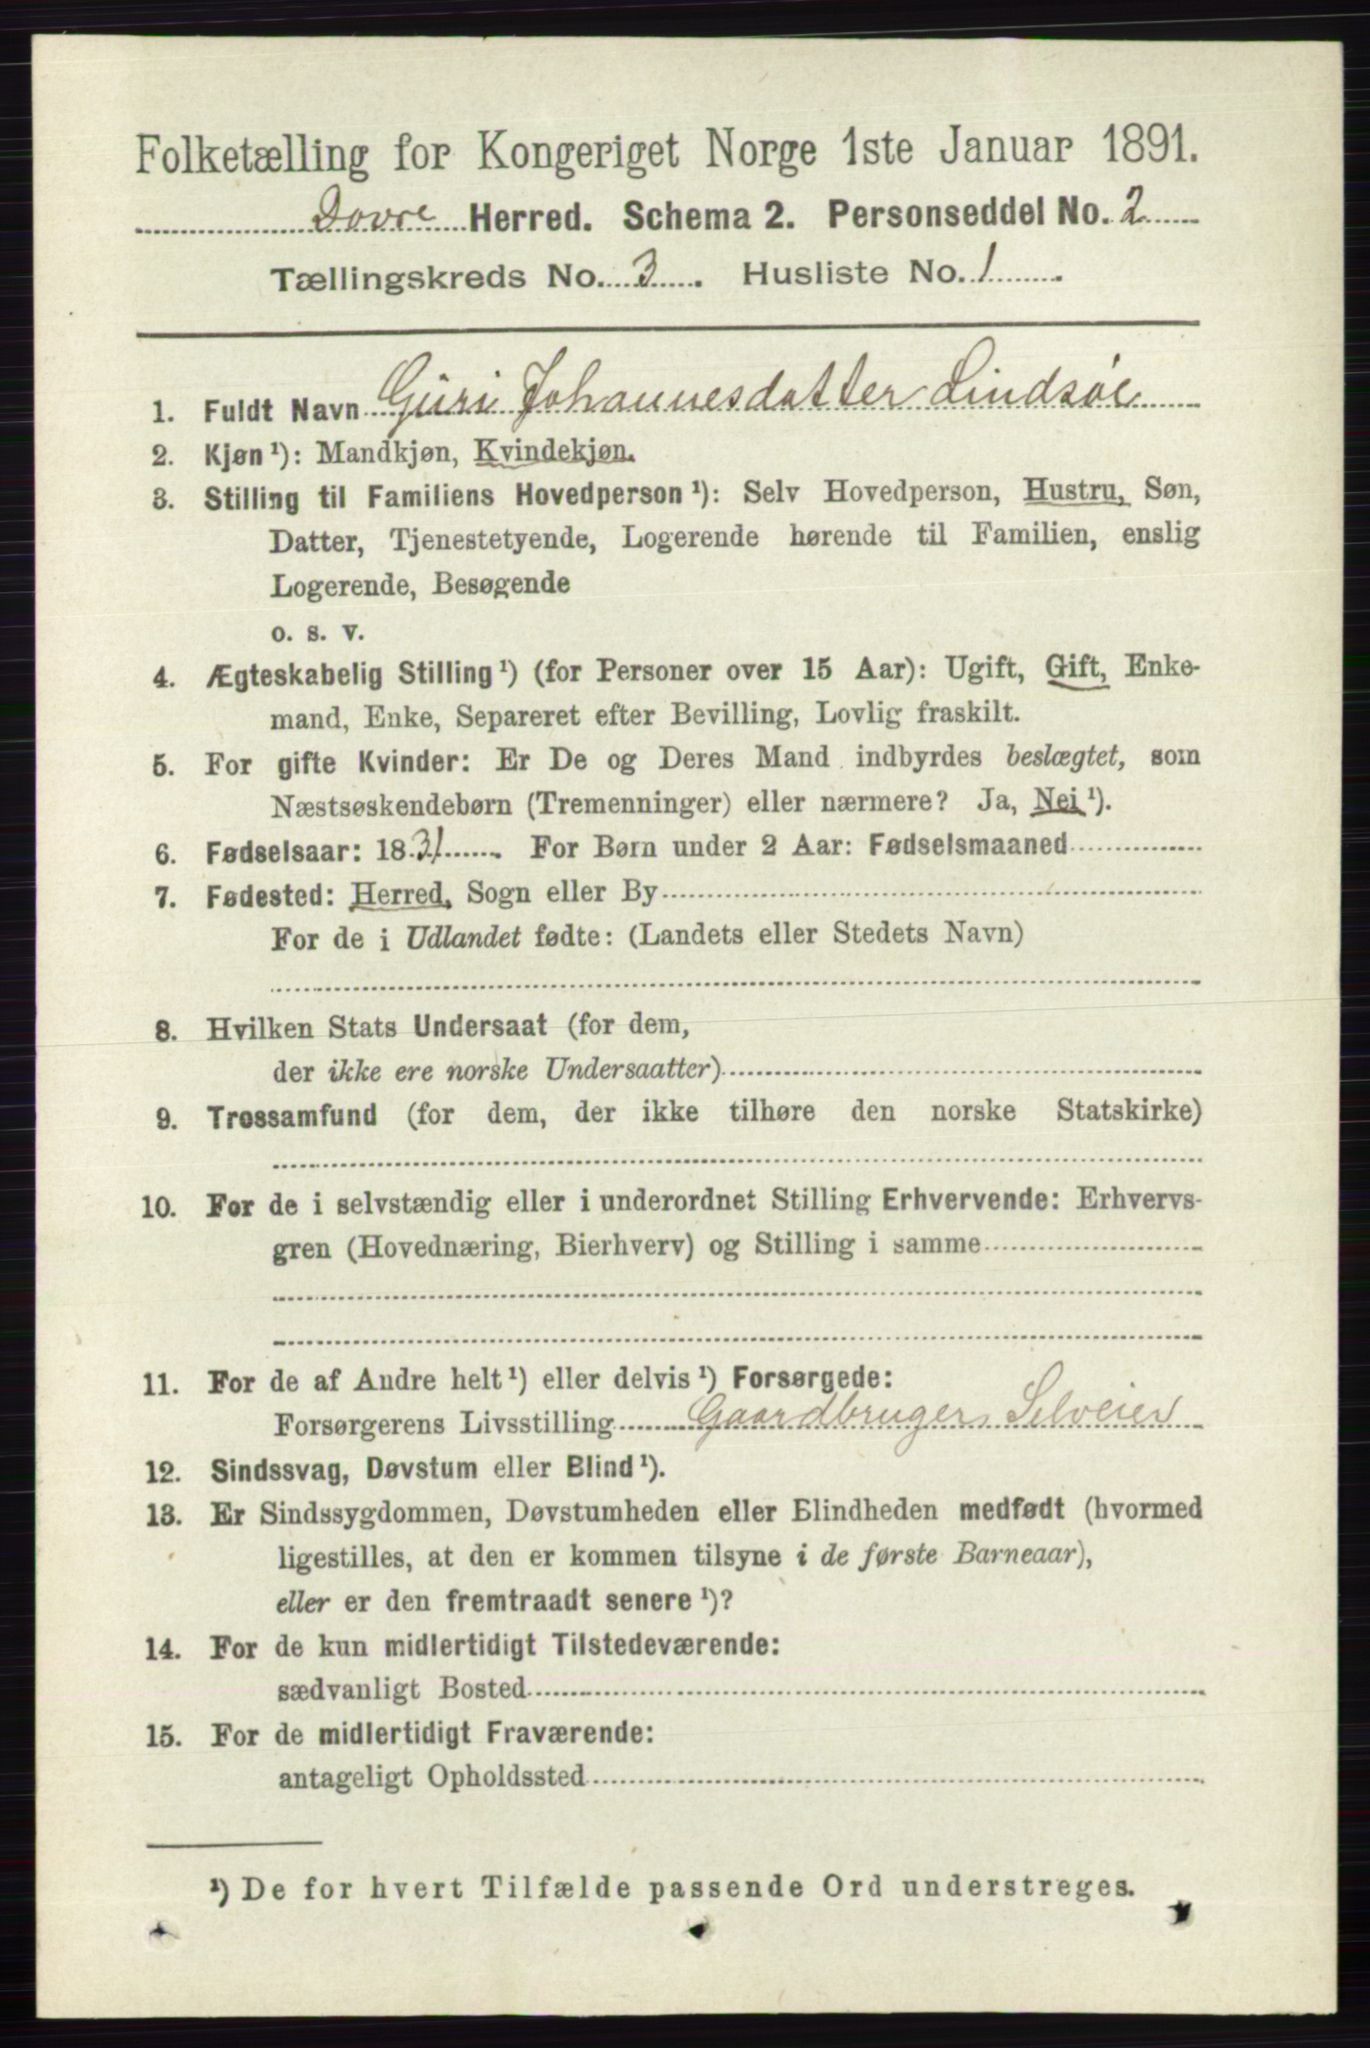 Folketælling for Kongeriget Norge 1ste Januar 1891.
Dovre Herred. Schema 2. Personseddel No. 2
Tællingskreds No. 3. Husliste No. 1.
1. Fuldt Navn Guri Johannesdatter Lindsøe
2. Kjøn ¹): Mandkjøn, Kvindekjøn.
3. Stilling til Familiens Hovedperson ¹): Selv Hovedperson, Hustru, Søn,
Datter, Tjenestetyende, Logerende hørende til Familien, enslig
Logerende, Besøgende
o. s. v.
4. Ægteskabelig Stilling ¹) (for Personer over 15 Aar): Ugift, Gift, Enke-
mand, Enke, Separeret efter Bevilling, Lovlig fraskilt.
5. For gifte Kvinder: Er De og Deres Mand indbyrdes beslægtet, som
Næstsøskendebørn (Tremenninger) eller nærmere? Ja, Nei ¹).
6. Fødselsaar: 1831. For Børn under 2 Aar: Fødselsmaaned
7. Fødested: Herred, Sogn eller By
For de i Udlandet fødte: (Landets eller Stedets Navn)
8. Hvilken Stats Undersaat (for dem,
der ikke ere norske Undersaatter)
9. Trossamfund (for dem, der ikke tilhøre den norske Statskirke)
10. For de i selvstændig eller i underordnet Stilling Erhvervende: Erhvervs-
gren (Hovednæring, Bierhverv) og Stilling i samme
11. For de af Andre helt ¹) eller delvis ¹) Forsørgede:
Forsørgerens Livsstilling Gaardbruger Selveier
12. Sindssvag, Døvstum eller Blind ¹).
13. Er Sindssygdommen, Døvstumheden eller Blindheden medfødt (hvormed
ligestilles, at den er kommen tilsyne i de første Barneaar),
eller er den fremtraadt senere ¹)?
14. For de kun midlertidigt Tilstedeværende:
sædvanligt Bosted
15. For de midlertidigt Fraværende:
antageligt Opholdssted
¹) De for hvert Tilfælde passende Ord understreges.